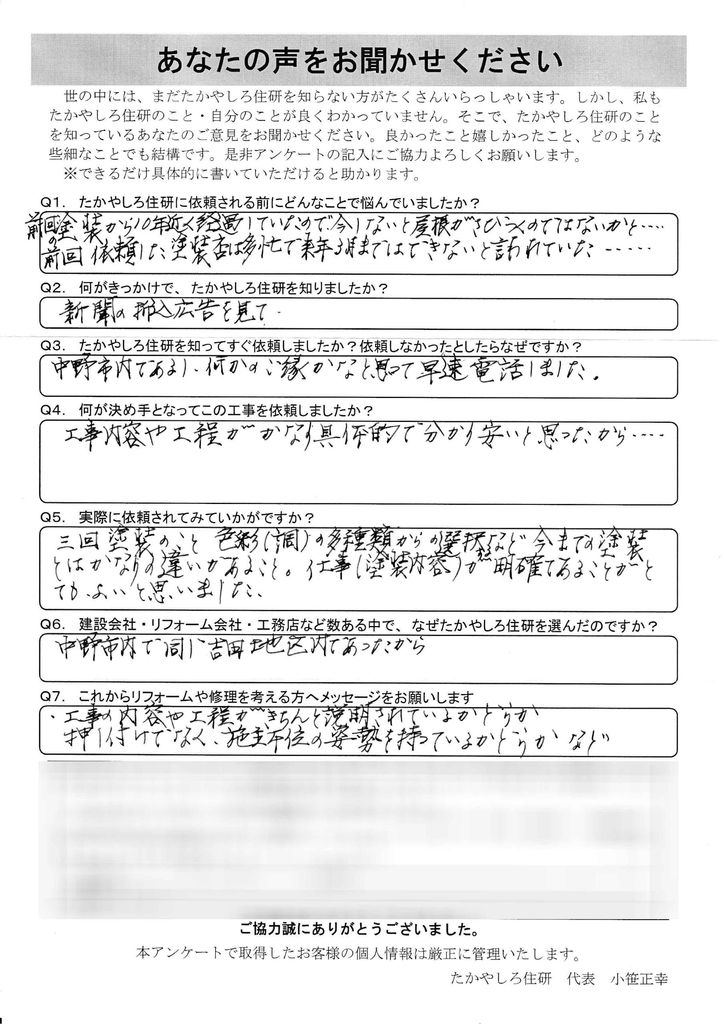 あなたの声をお聞かせください
世の中には、まだたかやしろ住研を知らない方がたくさんいらっしゃいます。しかし、私も
たかやしろ住研のこと・自分のことが良くわかっていません。そこで、たかやしろ住研のこと
を知っているあなたのご意見をお聞かせください。良かったこと嬉しかったこと、どのような
些細なことでも結構です。是非アンケートの記入にご協力よろしくお願いします。
※できるだけ具体的に書いていただけると助かります。
Q1. たかやしろ住研に依頼される前にどんなことで悩んでいましたか？
前回の塗装から10年近く経過していたので今しないと屋根がさびつくのではないかと……
前回依頼した塗装店は多忙で来年3月まではできないと言われていた……
Q2. 何がきっかけで、たかやしろ住研を知りましたか？
新聞の折込広告を見て.
Q3. たかやしろ住研を知ってすぐ依頼しましたか？依頼しなかったとしたらなぜですか？
中野市内であるし、何かのご縁かなと思って早速電話しました。
Q4. 何が決め手となってこの工事を依頼しましたか？
工事内容や工程がかなり具体的で分かり安いと思ったから……
Q5. 実際に依頼されてみていかがですか？
三回塗装のこと 色彩(調)の多種類からの選択など今までの塗装
とはかなりの違いがあること。仕事(塗装内容)が明確であることがと
てもよいと思いました.
Q6. 建設会社・リフォーム会社・工務店など数ある中で、なぜたかやしろ住研を選んだのですか？
中野市内で同じ吉田地区内であったから
Q7. これからリフォームや修理を考える方へメッセージをお願いします
・工事の内容や工程がきちんと説明されているかどうか
押し付けでなく、施主本位の姿勢を持っているかどうか など
ご協力誠にありがとうございました。
本アンケートで取得したお客様の個人情報は厳正に管理いたします。
たかやしろ住研 代表 小笹正幸